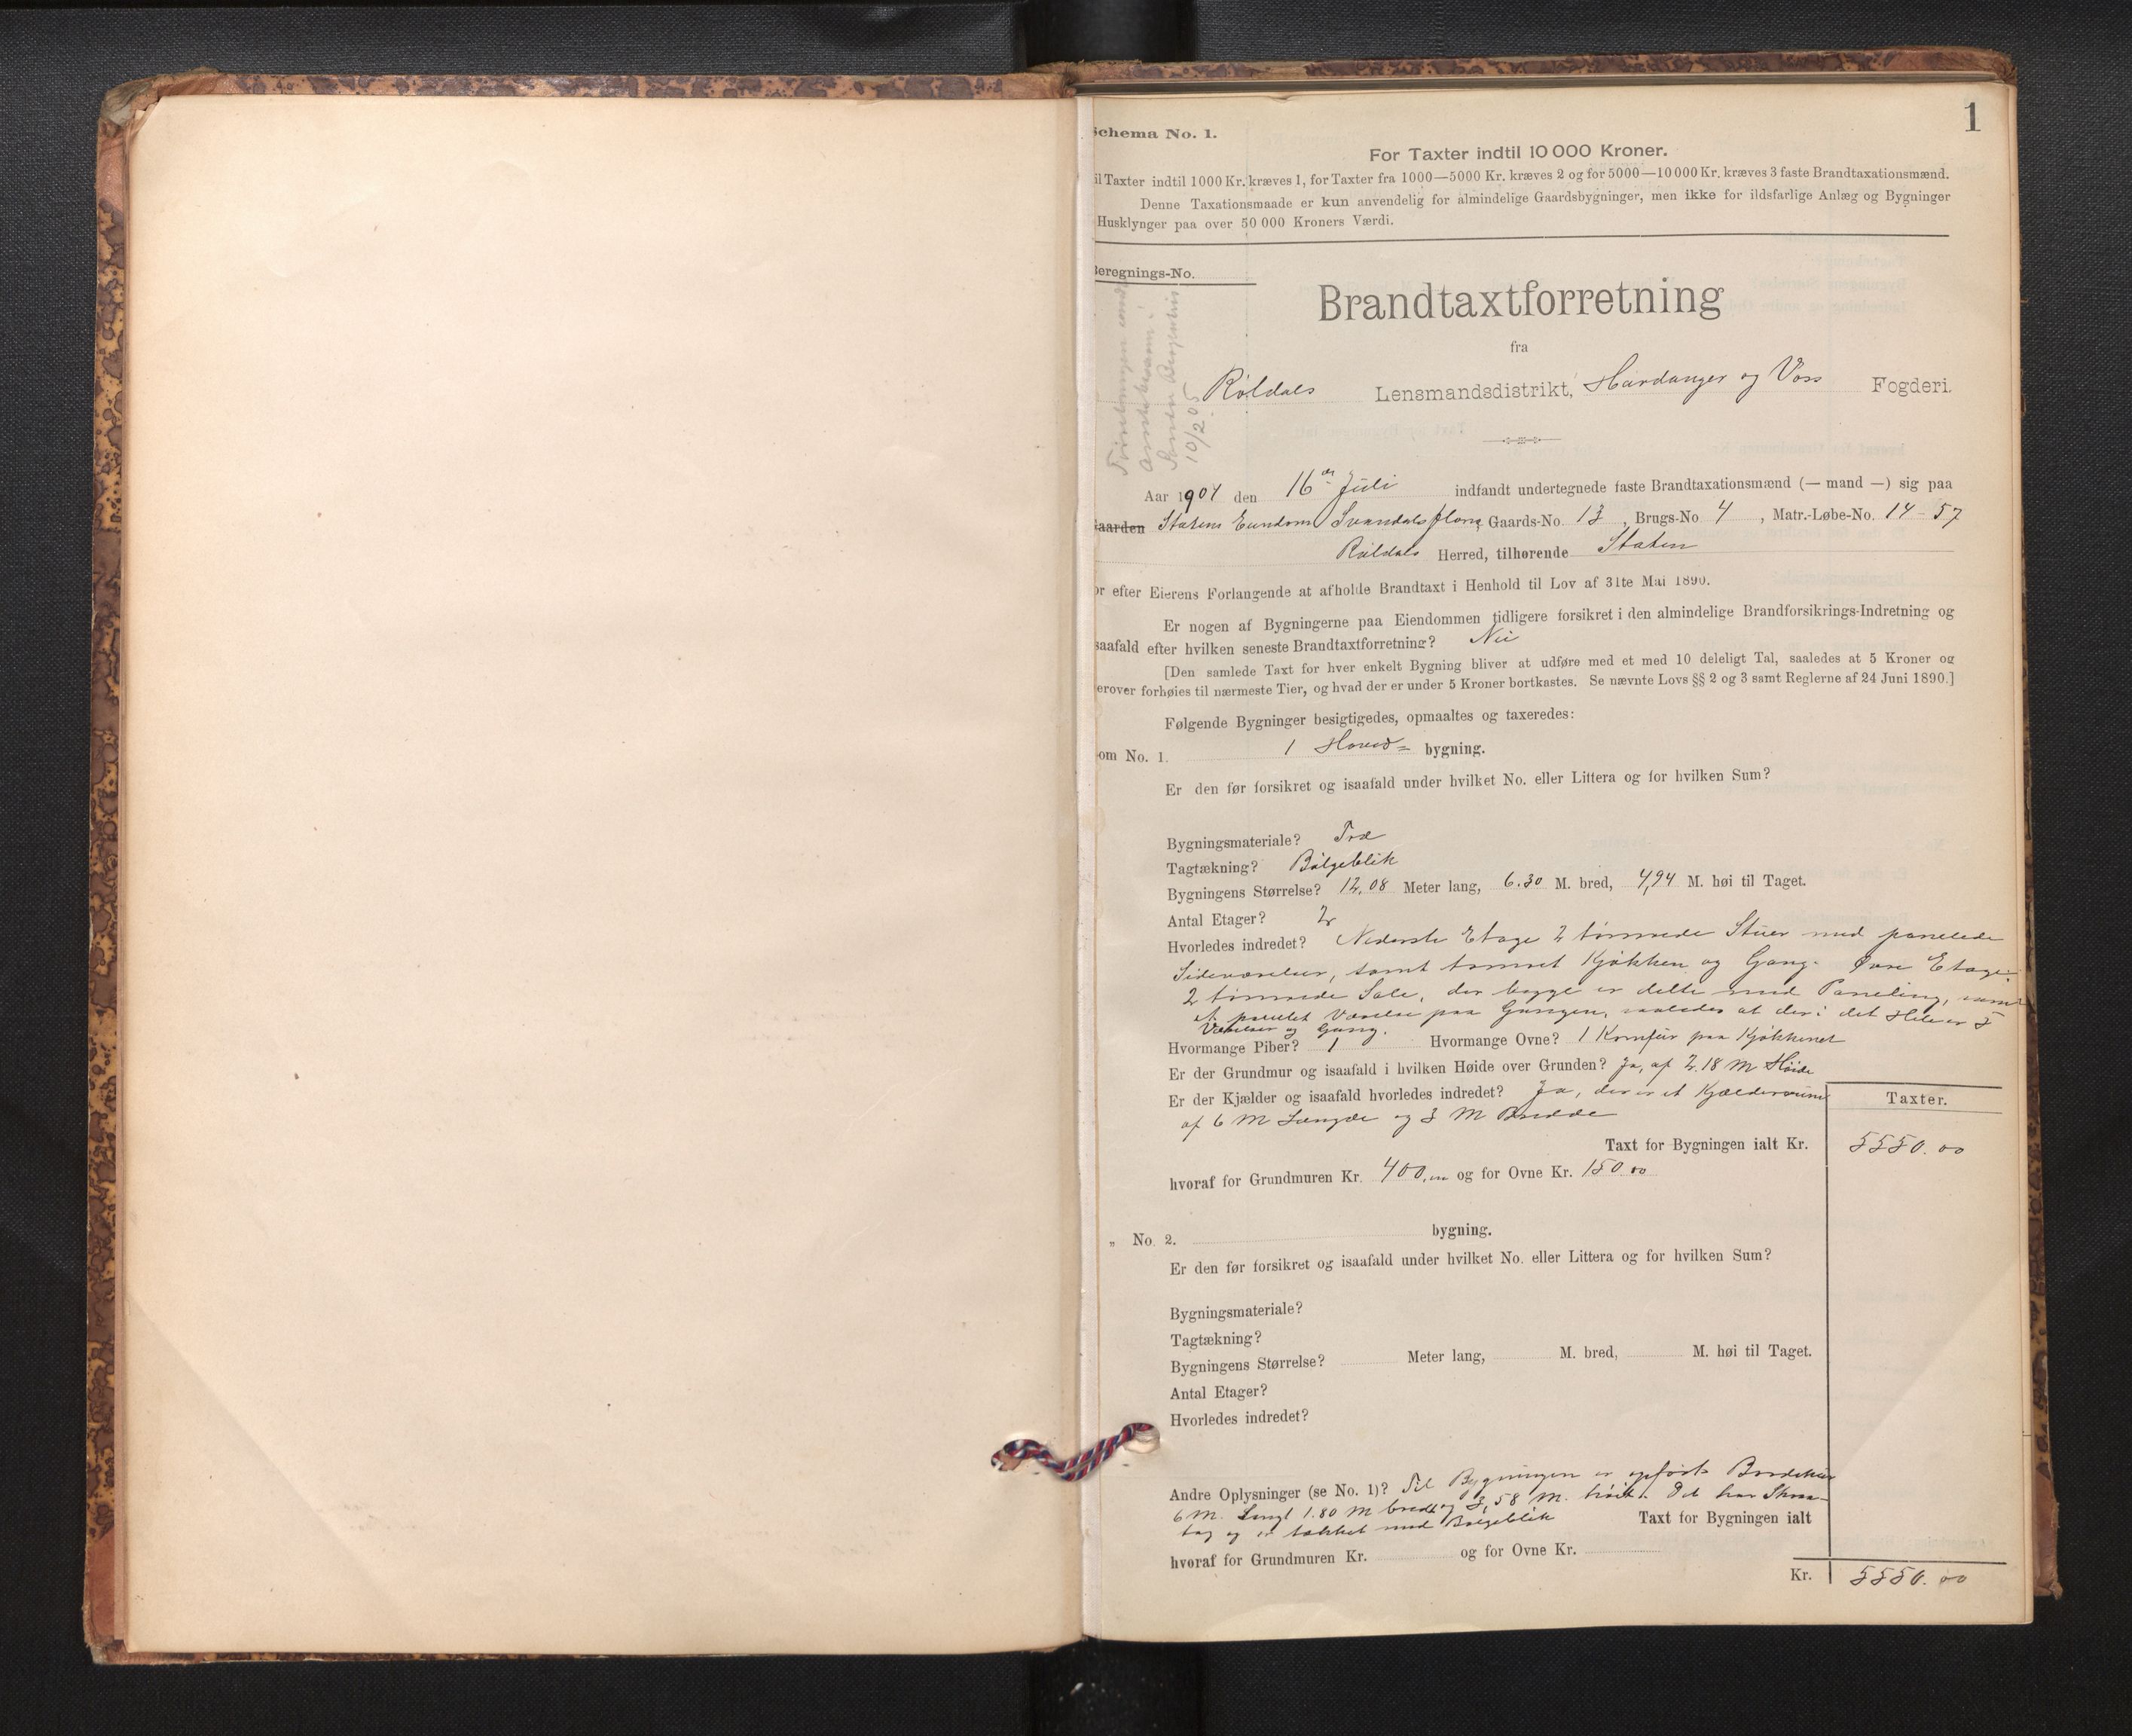 1
Schema No. 1.
For Taxter indtil 10 000 Kroner.
il Taxter indtil 1000 Kr. kræves 1, for Taxter fra 1000—5000 Kr. kræves 2 og for 5000—10000 Kr. kræves 3 faste Brandtaxationsmænd.
Denne Taxationsmaade er kun anvendelig for almindelige Gaardsbygninger, men ikke for ildsfarlige Anlæg og Bygninger
Husklynger paa over 50 000 Kroners Værdi.
Beregnings-No.
10/2 05
Brandtaxtforretning
fra
Röldals Lensmandsdistrikt, Hardanger og Voss Fogderi.
Aar 1904 den 16de Juli indfandt undertegnede faste Brandtaxationsmænd (— mand —) sig paa
Gaarden Statens Eiendom Svandalsflona, Gaards-No. 13, Brugs-No 4, Matr.-Løbe-No. 14 - 57
Röldals Herred, tilhørende Staten
or efter Eierens Forlangende at afholde Brandtaxt i Henhold til Lov af 31te Mai 1890.
Er nogen af Bygningerne paa Eiendommen tidligere forsikret i den almindelige Brandforsikrings-Indretning og
saafald efter hvilken seneste Brandtaxtforretning? Nei
[Den samlede Taxt for hver enkelt Bygning bliver at udføre med et med 10 deleligt Tal, saaledes at 5 Kroner og
erover forhøies til nærmeste Tier, og hvad der er under 5 Kroner bortkastes. Se nævnte Lovs §§ 2 og 3 samt Reglerne af 24 Juni 1890.]
Følgende Bygninger besigtigedes, opmaaltes og taxeredes:
om No. 1. 1 Hoved= bygning.
Er den før forsikret og isaafald under hvilket No. eller Littera og for hvilken Sum?
Bygningsmateriale? Træ
Tagtækning? Bölgeblik
Bygningens Størrelse? 12,08 Meter lang, 6.30 M. bred, 4,94 M. høi til Taget.
Antal Etager? 2
Hvorledes indredet? Nederste Etage 2 tömrede Stuer med panelede
Sideværelser, samt tömret Kjökken og Gang. Övre Etage:
2 tömrede Sale, der begge er delte med Paneling, samt
et panelet Værelse paa Gangen, saaledes at der i det Hele er 5
Værelser og Gang.
Hvormange Piber? 1 Hvormange Ovne? 1 Komfür paa Kjökkenet
Er der Grundmur og isaafald i hvilken Høide over Grunden? Ja, af 2.18 M Höide
Er der Kjælder og isaafald hvorledes indredet? Ja, der er et Kjælderrum
af 6 M Længde og 3 M Bredde
Taxter.
Taxt for Bygningen ialt Kr. 5550.00
hvoraf for Grundmuren Kr. 400,00 og for Ovne Kr. 150.00
„ No. 2. bygning.
Er den før forsikret og isaafald under hvilket No. eller Littera og for hvilken Sum?
Bygningsmateriale?
Tagtækning?
Bygningens Størrelse? Meter lang, M. bred, M. høi til Taget.
Antal Etager?
Hvorledes indredet?
Andre Oplysninger (se No. 1)? Til Bygningen er opfört
6 M. Langt 1.80 M bredt og 3,58 M. höit. Det har Skraa-
tag og er tækket med Bölgeblik Taxt for Bygningen ialt
hvoraf for Grundmuren Kr. og for Ovne Kr.
Kr. 5550.00